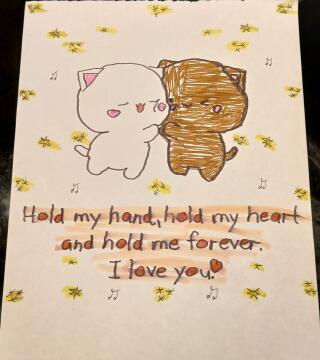 Hold my hand, hold my heart
and hold me forever.
I love you!